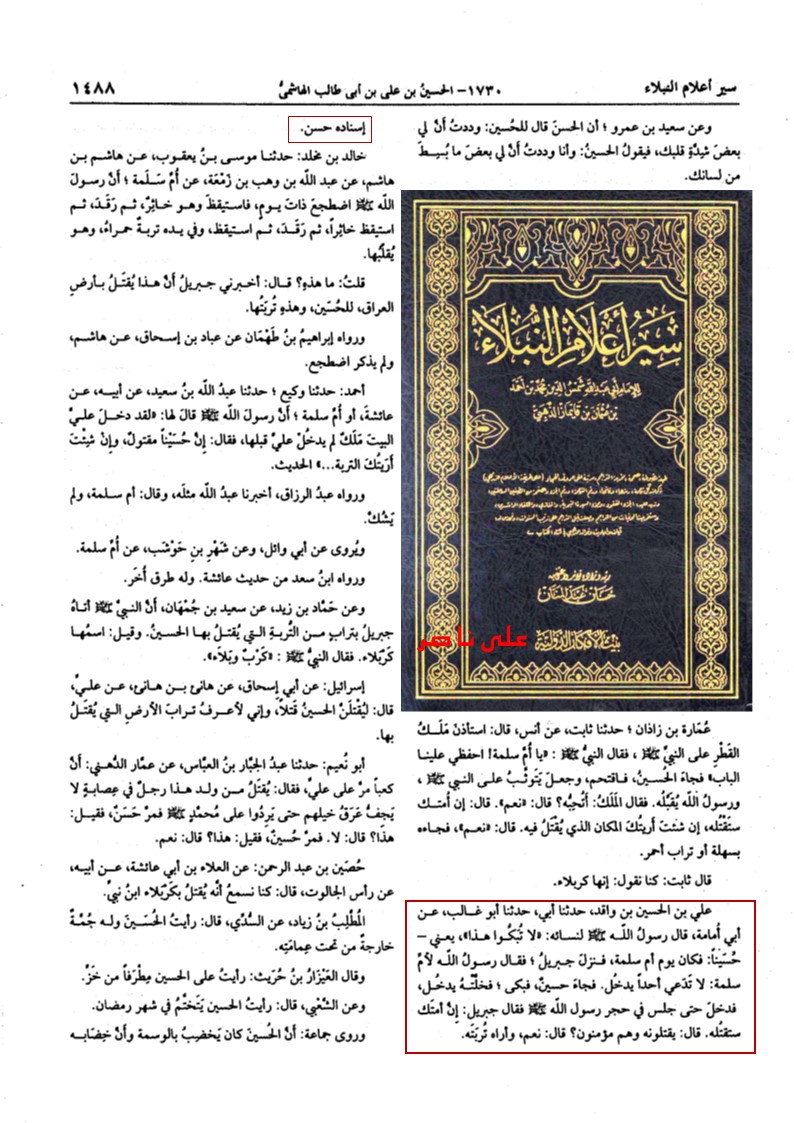 سير أعلام النبلاء
١٧٣٠- الحسينُ بن علي بن أبي طالب الهاشميُّ
١٤٨٨
وعن سعيد بن عمرو ؛ أن الحسنَ قال للحُسين: وددتُ أنَّ لي
بعضَ شيدَّةِ قلبك، فيقولُ الحسينُ: وأنا وددتُ أنَّ لي بعض ما بُسِطَ
من لسانك.
سير أعلام النبلاء
للإمام أبي عبد الله شمس الدين محمد بن أحمد
بن عثمان بن قايماز الذهبي
رتبه وزاده فوائد واعتنى به
حسان عبد المنان
على ناصر
بيت الأفكار الدولية
عُمَارة بن زاذان ؛ حدثنا ثابت، عن أنس، قال: استأذنَ مَلَـكُ
القَطْرِ على النبيِّ ﷺ ، فقال النبيُّ ﷺ : «يا أُم سلمة! احفظي علينا
الباب» فجاءَ الحُسينُ، فـاقتحم، وجعلَ يَتَوثَّـبُ على النبي ﷺ ،
ورسولُ اللّه يُقَبِّلُه. فقال المَلَكُ: أَتُحِبُّه؟ قال: «نعم». قال: إن أُمتـك
ستَقْتُله، إن شئتَ أَريتُكَ المكان الذي يُقْتَلُ فيه. قال: «نعـم»، فجاءه
بسهلة أو تراب أحمر.
قال ثابت: كنا نقول: إنها كربلاء.
علي بن الحسين بن واقد، حدثنا أبي، حدثنا أبو غـالب، عـن
أبي أُمامة، قال رسولُ اللـه ﷺ لنسائه: «لا تُبَكُّوا هذا»، يعني –
حُسَيناً: فكان يوم أم سلمة، فـنزلَ جبريلُ ؛ فقـال رسـولُ اللـه لأمِّ
سلمة: لا تَدَعي أحداً يدخلُ. فجـاءَ حسينٌ، فبكى ؛ فخلَّتْـهُ يدخـل،
فدخلَ حتى جلس في حجر رسول الله ﷺ فقال جبريل: إنَّ أمتَك
ستقتُله. قال: يقتلونه وهم مؤمنون؟ قال: نعم، وأراه تُربتَه.
إسناده حسن.
خالد بن مخلد: حدثنا موسى بنُ يعقوب، عن هاشم بن
هاشم، عن عبد اللّه بن وهب بن زَمْعَة، عن أُمِّ سَلَمة ؛ أن رسولَ
اللّه ﷺ اضطجعَ ذاتَ يـومٍ، فاستيقظَ وهـو خـائِرٌ، ثـم رَقَـدَ، ثـم
استيقظ خائِراً، ثم رَقَـدَ، ثـم استيقظ، وفي يـده تربـةٌ حمـراءُ، وهـو
يُقلِّبُها.
قلتُ: ما هذهِ؟ قـال: أخبرني جـبريلُ أَنَّ هـذا يُقتَـلُ بـأرضِ
العراق، للحُسَين، وهذهِ تُربَتُها.
ورواه إبراهيمُ بنُ طَهْمَان عن عباد بن إسـحاق، عن هاشم،
ولم يذكر اضطجع.
أحمد: حدثنا وكيع ؛ حدثنا عبدُ اللّه بنُ سعيد، عن أبيـه، عن
عائشةَ، أو أُم سلمة ؛ أنَّ رسولَ اللّه ﷺ قالَ لها: «لقد دخلَ عليَّ
البيتَ مَلَكٌ لم يدخُلْ عليَّ قبلَها، فقال: إنَّ حُسَيْناً مقتولٌ، وإنْ شِئْتَ
أرَيْتُكَ التربة...» الحديث.
ورواه عبدُ الرزاق، أخبرنا عبدُ اللّه مثلَه، وقال: أم سلمة، ولم
يَشُكَّ.
ويُروى عن أبي وائل، وعن شَهْرِ بنِ حَوْشَب، عن أُمِّ سلمة.
ورواه ابنُ سعد من حديث عائشة. وله طرق أُخَر.
وعن حَمَّاد بن زيد، عن سعيد بن جُمْهَان، أَنَّ النبيَّ ﷺ أتـاهُ
جبريلُ بـترابٍ مـن التُّربـةِ التـي يُقْتَـلُ بهـا الحسينُ. وقيـل: اسمُهـا
كَرْبَلاء. فقال النبيُّ ﷺ : «كَرْبٌ وبَلاَء».
إسرائيل: عن أبي إسحاق، عن هانئ بـن هـانئ، عن عليٍّ،
قال: ليُقْتلَنَّ الحسينُ قَتْلاً، وإني لأعرفُ تـرابَ الأرضِ التـي يُقتَـلُ
بها.
أبو نُعيم: حدثنا عبدُ الجبَّار بنُ العبَّاس، عن عمار الدُّهني: أَنَّ
كعباً مرَّ على عليٍّ، فقال: يُقْتَلُ مـن ولـد هذا رجـلٌ في عِصابةٍ لا
يَجِفُّ عَرَقُ خيلهم حتى يَرِدُوا على مُحمدٍ ﷺ فمرَّ حَسَنٌ، فقيـل:
هذا؟ قال: لا. فمرَّ حُسينٌ، فقيل: هذا؟ قال: نعم.
حُصَين بن عبد الرحمن: عن العلاء بن أبي عائشة، عـن أبيـه،
عن رأس الجالوت، قال: كنا نسمعُ أنَّه يُقتلُ بكَرْبَلاء ابنُ نبيٍّ.
المُطَّلِبُ بنُ زياد، عن السُّدِّي، قال: رأيتُ الحُسَـيْنَ ولـه جُمَّـةٌ
خارجةٌ من تحت عِمامَتِهِ.
وقال العَيْزَارُ بنُ حُرَيث: رأيتُ على الحسين مِطْرَفاً من خَزٍّ.
وعن الشَّعْبي، قال: رأيتُ الحسين يَتَختَّمُ في شهر رمضان.
وروى جماعة: أنَّ الحُسينَ كان يَخضِبُ بالوسمة وأَنَّ خِضَابَـه